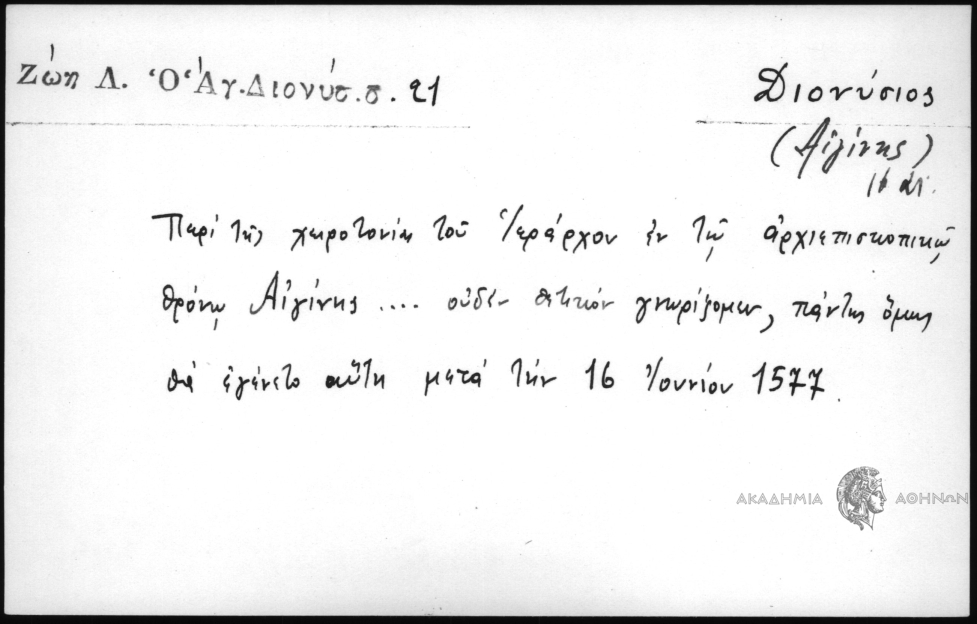 Ζώη Λ. Ὁ Ἅγ. Διονύσ. σ. 21
Διονύσιος
(Αἰγίνης)
16 αἰ.
Περί τῆς χειροτονίας τοῦ Ἱεράρχου ἐν τῷ ἀρχιεπισκοπικῷ
θρόνῳ Αἰγίνης .... οὐδέν θετικόν γνωρίζομεν, πάντως ὅμως
θά ἐγένετο αὕτη μετά τήν 16 Ἰουνίου 1577.
ΑΚΑΔΗΜΙΑ ΑΘΗΝΩΝ